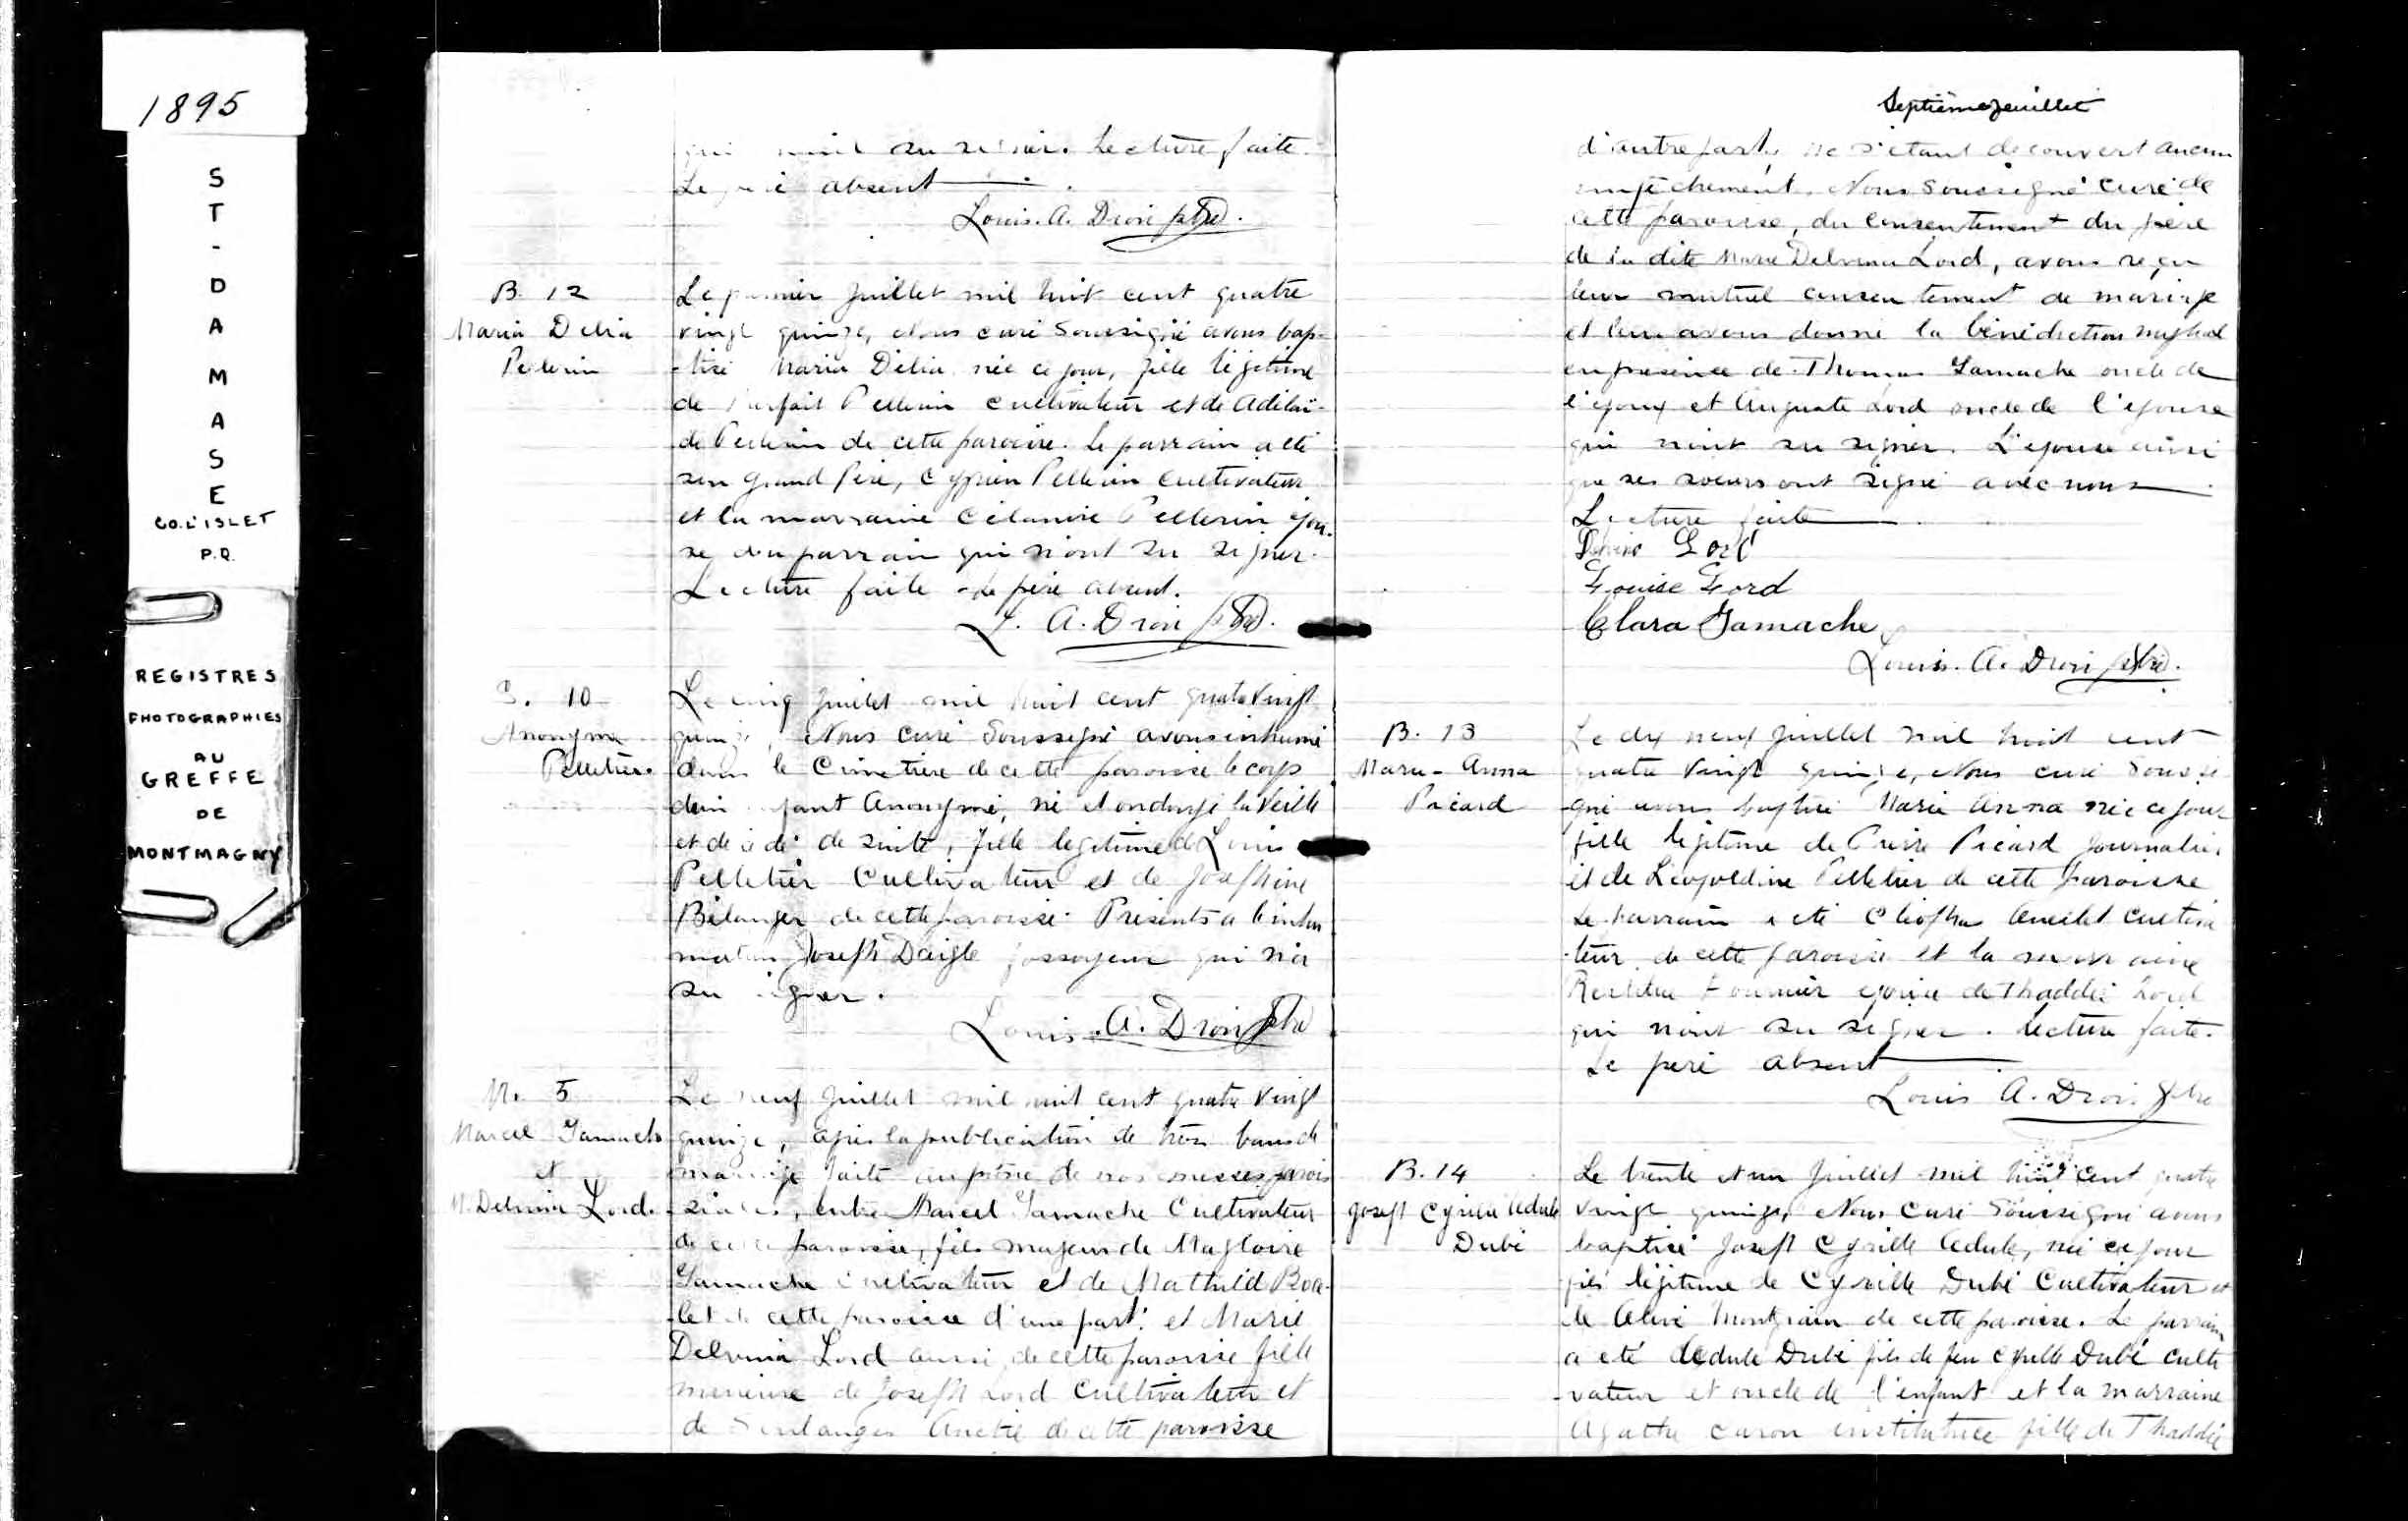 1895
ST-DAMASE
CO. L'ISLET
P.Q.
REGISTRES
PHOTOGRAPHIES
AU
GREFFE
DE
MONTMAGNY
su signer. Lecture faite.
Le père absent
Louis. A. Dion ptre.
B. 12
Maria Delia
Pellerin
Le premier juillet mil huit cent quatre
vingt quinze, Nous curé soussigné avons bap-
tisé Maria Délia née ce jour, fille légitime
de Parfait Pellerin cultivateur et de Adélaï-
de Pellerin de cette paroisse. Le parrain a été
son grand père, Cyprien Pellerin cultivateur
et la marraine Célanire Pellerin épou-
se du parrain qui n'ont su signer.
Lecture faite. Le père absent.
L. A. Dion ptre.
S. 10
Anonyme
Pelletier.
Le cinq juillet mil huit cent quatre vingt
quinze, Nous curé soussigné avons inhumé
dans le cimetière de cette paroisse le corps
d'un enfant Anonyme, né et ondoyé la veille
et décédé de suite, fille legitime de Louis
Pelletier Cultivateur et de Josephine
Bélanger de cette paroisse. Présents a l'inhu
mation Joseph Daigle fossoyeur qui n'a
su signer.
Louis. A. Dion Ptre
M. 5
Marcel Gamache
et
M. Delvina Lord.
Le neuf juillet mil huit cent quatre vingt
quinze, après la publication de trois bans de
mariage faite au prône de nos messes parois
siales, entre Marcel Gamache Cultivateur
de cette paroisse, fils majeur de Magloire
Gamache cultivateur et de Mathild
de cette paroisse d'une part. et Marie
Delvina Lord aussi de cette paroisse fille
mineure de Joseph Lord Cultivateur et
de de cette paroisse
Septième feuillet
d'autre part, ne s'étant découvert aucun
empêchement. Nous soussigné curé de
cette paroisse, du consentement du père
de la dite Marie Delvina Lord, avons reçu
leur mutuel consentement de mariage
et leur avons donné la bénédiction nuptiale
en presence de Thomas Gamache oncle de
l'époux et Auguste Lord oncle de l'épouse
qui n'ont su signer. L'épouse ainsi
que ses soeurs ont signé avec nous
Lecture faite
Lord
Louise Lord
Clara Gamache
Louis. A. Dion ptre.
B. 13
Marie-Anna
Picard
Le dix neuf juillet mil huit cent
quatre vingt quinze, Nous curé soussi
gné avons baptisé Marie Anna née ce jour
fille légitime de Pierre Picard journalier
et de Léopoldine Pelletier de cette paroisse
Le parrain a été Cléophas Ouellet cultiva
teur de cette paroisse et la marraine
Fournier épouse de Thaddée Lord
qui n'ont su signer. lecture faite.
Le père absent
Louis A. Dion Ptre
B. 14
Joseph Cyrille Cédule
Dubé
Le trente et un juillet mil huit cent quatre
vingt quinze, Nous Curé soussigné avons
baptisé Joseph Cyrille Cédule, né ce jour
fils légitime de Cyrille Dubé Cultivateur et
de Montgrain de cette paroisse. Le parrain
a été Cédule Dubé fils de feu Cyrille Dubé culti
vateur et oncle de l'enfant et la marraine
Agathe Caron institutrice fille de Thaddée